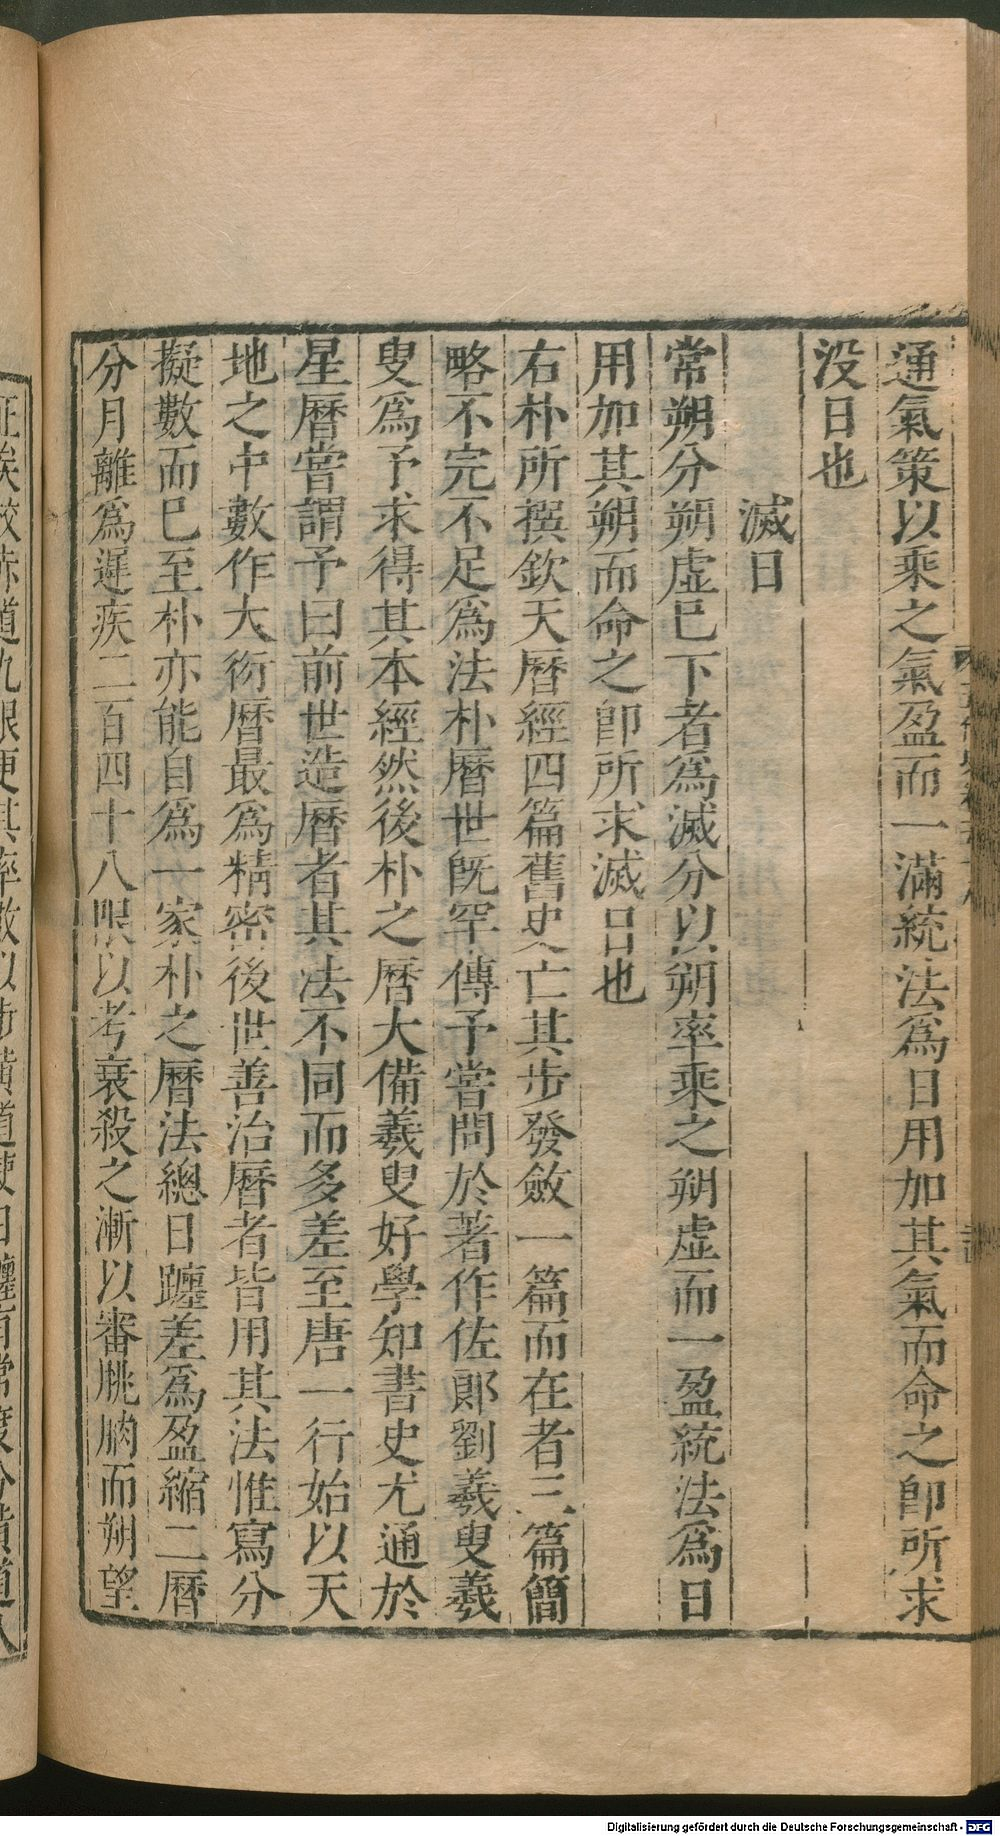 通氣策以乘之氣盈而一滿統法爲日用加其氣而命之卽所求
没日也
滅日
常朔分朔虛已下者爲滅分以朔率乘之朔虛而一盈統法爲日
用加其朔而命之卽所求滅日也
右朴所撰欽天曆經四篇舊史亡其步發斂一篇而在者三篇簡
略不完不足爲法朴曆世旣罕傳予嘗問於著作佐郞劉羲叟羲
叟爲予求得其本經然後朴之曆大備羲叟好學知書史尤通於
星曆嘗謂予曰前世造曆者其法不同而多差至唐一行始以天
地之中數作大衍曆最爲精密後世善治曆者皆用其法惟寫分
擬數而已至朴亦能自爲一家朴之曆法總日躔差爲盈縮二曆
分月離爲遲疾二百四十八限以考衰殺之漸以審朓朒而朔望
正矣校赤道九限更其率數以步黃道使日躔有常度分黃道八
Digitalisierung gefördert durch die Deutsche Forschungsgemeinschaft - DFG